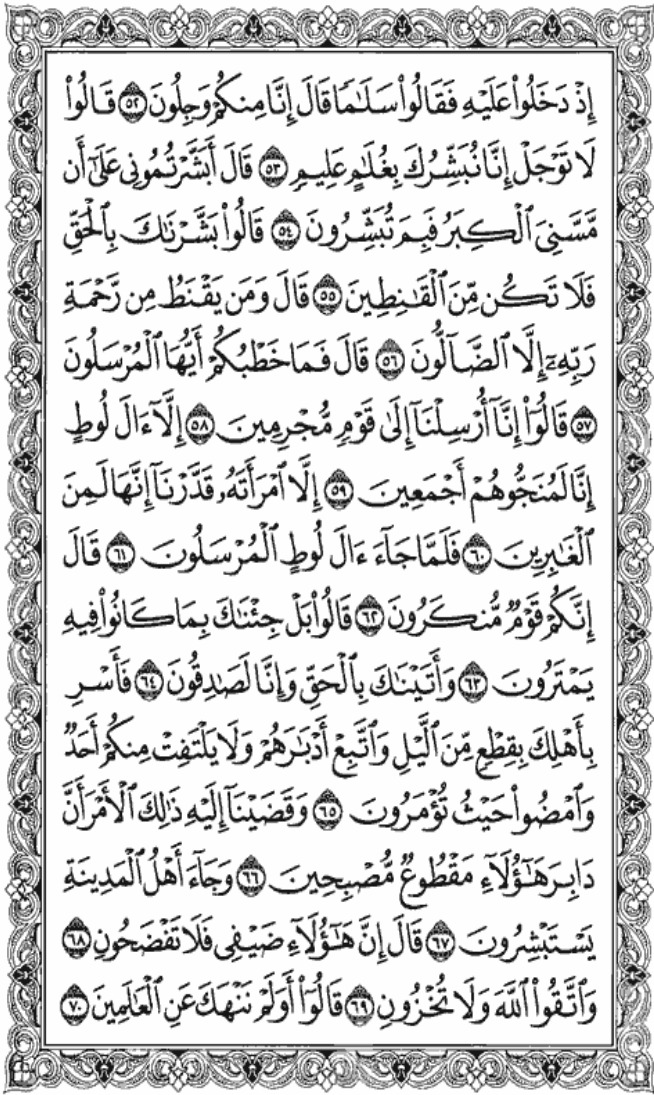 إِذْ دَخَلُوا۟ عَلَيْهِ فَقَالُوا۟ سَلَـٰمًا قَالَ إِنَّا مِنكُمْ وَجِلُونَ ۝٥٢ قَالُوا۟
لَا تَوْجَلْ إِنَّا نُبَشِّرُكَ بِغُلَـٰمٍ عَلِيمٍ ۝٥٣ قَالَ أَبَشَّرْتُمُونِى عَلَىٰٓ أَن
مَّسَّنِىَ ٱلْكِبَرُ فَبِمَ تُبَشِّرُونَ ۝٥٤ قَالُوا۟ بَشَّرْنَـٰكَ بِٱلْحَقِّ
فَلَا تَكُن مِّنَ ٱلْقَـٰنِطِينَ ۝٥٥ قَالَ وَمَن يَقْنَطُ مِن رَّحْمَةِ
رَبِّهِۦٓ إِلَّا ٱلضَّآلُّونَ ۝٥٦ قَالَ فَمَا خَطْبُكُمْ أَيُّهَا ٱلْمُرْسَلُونَ
۝٥٧ قَالُوٓا۟ إِنَّآ أُرْسِلْنَآ إِلَىٰ قَوْمٍ مُّجْرِمِينَ ۝٥٨ إِلَّآ ءَالَ لُوطٍ
إِنَّا لَمُنَجُّوهُمْ أَجْمَعِينَ ۝٥٩ إِلَّا ٱمْرَأَتَهُۥ قَدَّرْنَآ إِنَّهَا لَمِنَ
ٱلْغَـٰبِرِينَ ۝٦٠ فَلَمَّا جَآءَ ءَالَ لُوطٍ ٱلْمُرْسَلُونَ ۝٦١ قَالَ
إِنَّكُمْ قَوْمٌ مُّنكَرُونَ ۝٦٢ قَالُوا۟ بَلْ جِئْنَـٰكَ بِمَا كَانُوا۟ فِيهِ
يَمْتَرُونَ ۝٦٣ وَأَتَيْنَـٰكَ بِٱلْحَقِّ وَإِنَّا لَصَـٰدِقُونَ ۝٦٤ فَأَسْرِ
بِأَهْلِكَ بِقِطْعٍ مِّنَ ٱلَّيْلِ وَٱتَّبِعْ أَدْبَـٰرَهُمْ وَلَا يَلْتَفِتْ مِنكُمْ أَحَدٌ
وَٱمْضُوا۟ حَيْثُ تُؤْمَرُونَ ۝٦٥ وَقَضَيْنَآ إِلَيْهِ ذَٰلِكَ ٱلْأَمْرَ أَنَّ
دَابِرَ هَـٰٓؤُلَآءِ مَقْطُوعٌ مُّصْبِحِينَ ۝٦٦ وَجَآءَ أَهْلُ ٱلْمَدِينَةِ
يَسْتَبْشِرُونَ ۝٦٧ قَالَ إِنَّ هَـٰٓؤُلَآءِ ضَيْفِى فَلَا تَفْضَحُونِ ۝٦٨
وَٱتَّقُوا۟ ٱللَّهَ وَلَا تُخْزُونِ ۝٦٩ قَالُوٓا۟ أَوَلَمْ نَنْهَكَ عَنِ ٱلْعَـٰلَمِينَ ۝٧٠